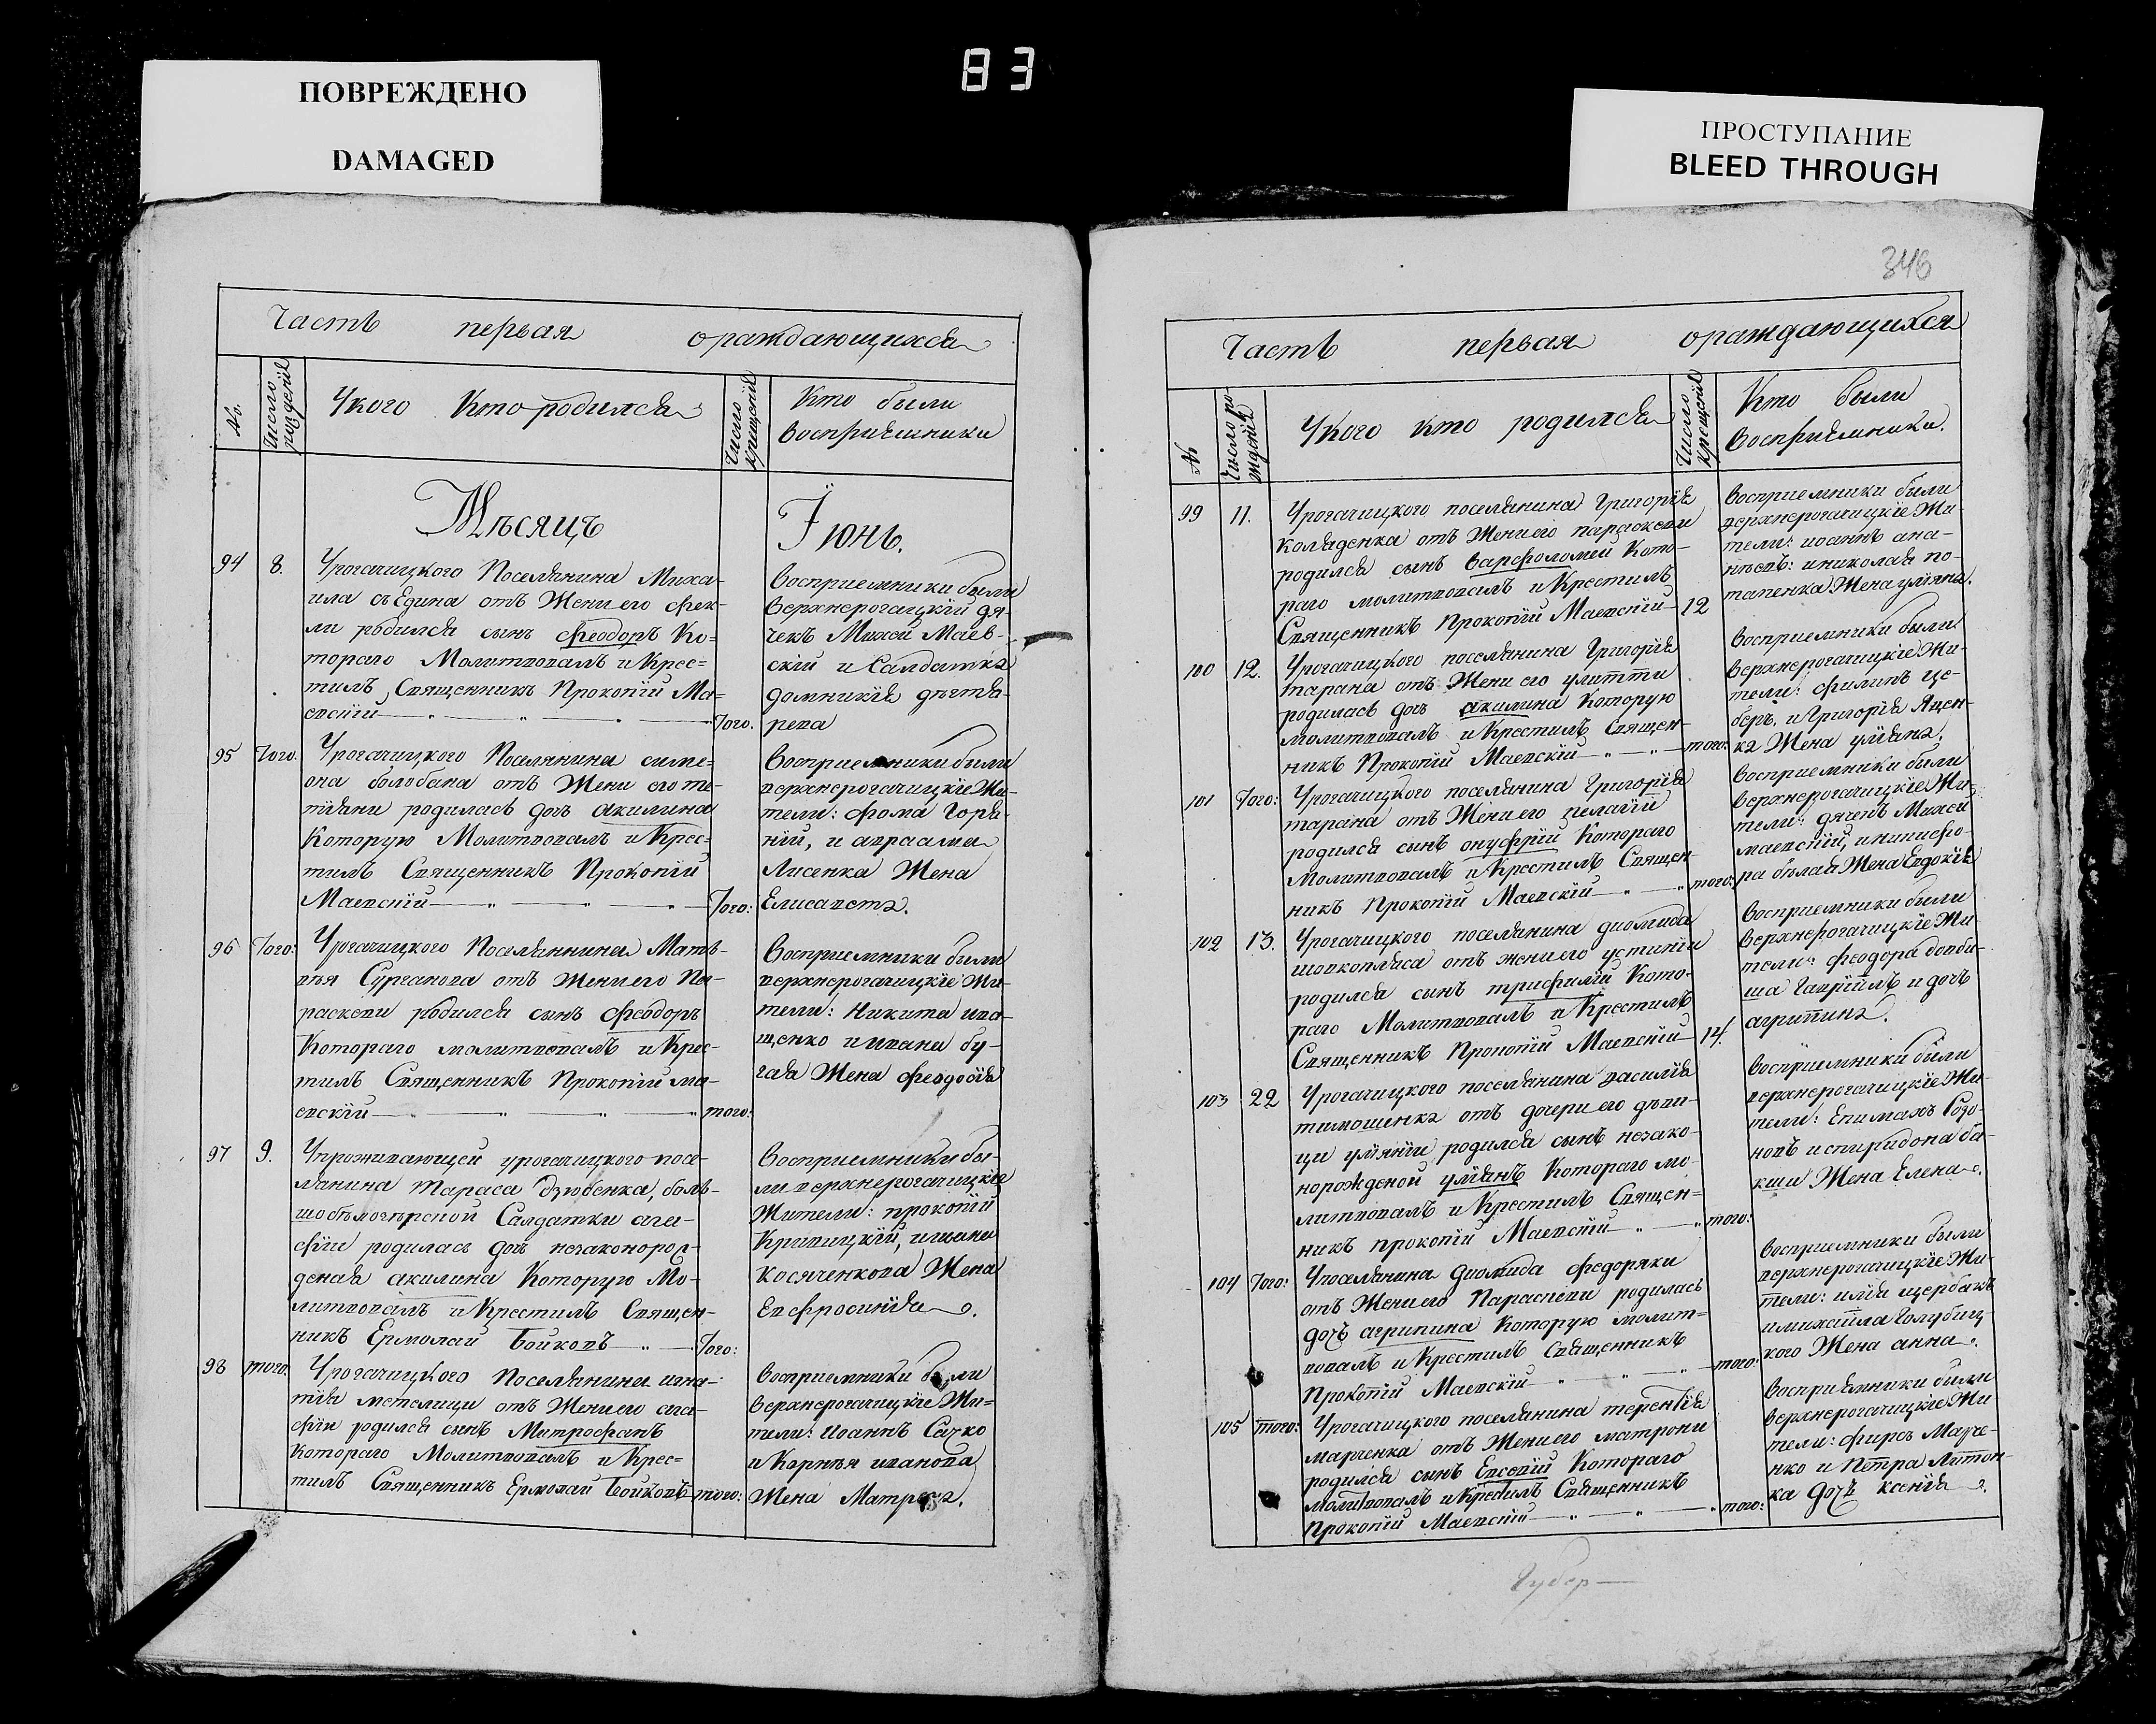 83
ПОВРЕЖДЕНО
DAMAGED
ПРОСТУПАНИЕ
BLEED THROUGH
Часть первая ораждающихся
№. Число рожденія Укого Кто родился Число крещенія Кто были
воспріемники
Мѣсяцъ Іюнь.
94 8. Урогачицкого Поселянина Миха-
ила съЕдина отъ Жени его фек-
ли родился сынъ феодоръ Ко=
тораго Молитвовалъ и Крес=
тилъ Священникъ Прокопій Ма=
евскій Того.
Восприемники были
верхнерогачицкій дя-
чекъ Михей Маев-
скій и Салдатка
домникія
95 Того. Урогачицкого Поселянина симе-
она болобана отъ Жени его те-
тіяни родилась дочь акилина
Которую Молитвовалъ и Крес=
тилъ Священникъ Прокопій
Маевскій Того:
Восприемники были
верхнерогачицкіе Жи-
тели: фома Горя-
ній, и авраама
Лисенка Жена
Елисавета.
96 Того: Урогачицкого Поселяннина Матѣ-
вея Сурганова отъ Жени его Па-
раскеви родился сынъ феодоръ
Котораго молитвовалъ и Крес-
тилъ Священникъ Прокопій ма-
евскій того:
Восприемники были
верхнерогачицкіе Жи-
тели: Никита ива-
щенко и ивана бу-
гая Жена феодосія
97 9. Упроживающей урогачицкого посе-
лянина тараса дзюбенка, боль-
Салдатки ага-
фіи родилась дочь незаконорож-
деная акилина Которую Мо-
литвовалъ и Крестилъ Священ-
никъ Ермолай Бойковъ Того:
Восприемники бы-
ли верхнерогачицкіе
Жители: прокопій
Кривицкій, и
косяченкова Жена
Евфросинія.
98 того. Урогачицкого Поселянина игна-
тія метелици отъ Жени его ага-
фіи родился сынъ Митрофанъ
Котораго Молитвовалъ и Крес=
тилъ Священникъ Ермолай Бойковъ того:
Восприемники были
верхнерогачицкіе Жи=
тели: Иоаннъ Сачко
и Корнѣя иванова
Жена Матрона.
346
Часть первая ораждающихся
№ Число рожденія Укого кто родился Число крещенія Кто были
воспріемники.
99 11. Урогачицкого поселянина Григорія
Коляденка отъ Жени его параскеви
родился сынъ варфоломей Кото-
раго молитвовалъ и Крестилъ
Священникъ Прокопій Маевскій 12
восприемники были
верхнерогачицкіе Жи-
тели: иоаннъ ана-
нѣевъ: и николая по-
тапенка Жена уліяна.
100 12. Урогачицкого поселянина Григорія
тарана отъ Жени его улитти
родилась дочь акилина Которую
молитвовалъ и Крестилъ Священ-
никъ Прокопій Маевскій того:
восприемники были
верхнерогачицкіе Жи-
тели: филипъ це-
беръ, и Григорія Яцен-
ка Жена уліяна.
101 Того: Урогачицкого поселянина Григорія
тарана отъ Жени его пелагіи
родился сынъ онуфрій Котораго
Молитвовалъ и Крестилъ Священ-
никъ Прокопій Маевскій того:
восприемники были
верхнерогачицкіе Жи-
тели: дячекъ Михей
маевскій, и никифо-
ра бѣлая Жена Евдокія
102 13. Урогачицкого поселянина диомида
шовкопляса отъ жени его устиніи
родился сынъ трифилій Кото-
раго Молитвовалъ и Крестилъ
Священникъ Прокопій Маевскій 14.
восприемники были
верхнерогачицкіе Жи-
тели: феодора довби-
ша Гавріилъ и дочь
агрипина.
103 22 Урогачицкого поселянина василія
тимошинка отъ дочери его дѣви-
ци уліяніи родился сынъ незако-
норожденой уліянъ Котораго мо-
литвовалъ и Крестилъ Священ=
никъ прокопій Маевскій того:
восприемники были
верхнерогачицкіе Жи-
тели: Епимахъ Родо-
новъ и спиридона ба-
кши Жена Елена.
104 Того: Упоселянина Диомида федоряки
отъ Жени его Параскеви родилась
дочь агрипина Которую молит=
вовалъ и Крестилъ Священникъ
Прокопій Маевскій того:
восприемники были
верхнерогачицкіе Жи-
тели: илія щербакъ
и михаила Голубиц-
кого Жена анна.
105 того: Урогачицкого поселянина терентія
марченка отъ Жени его матрони
родился сынъ Евсевій Котораго
молитвовалъ и Крестилъ Священникъ
Прокопій Маевскій того:
восприемники были
верхнерогачицкіе Жи-
тели: фирсъ Марче-
нко и Петра Литон-
ка дочь ксенія.
Губер